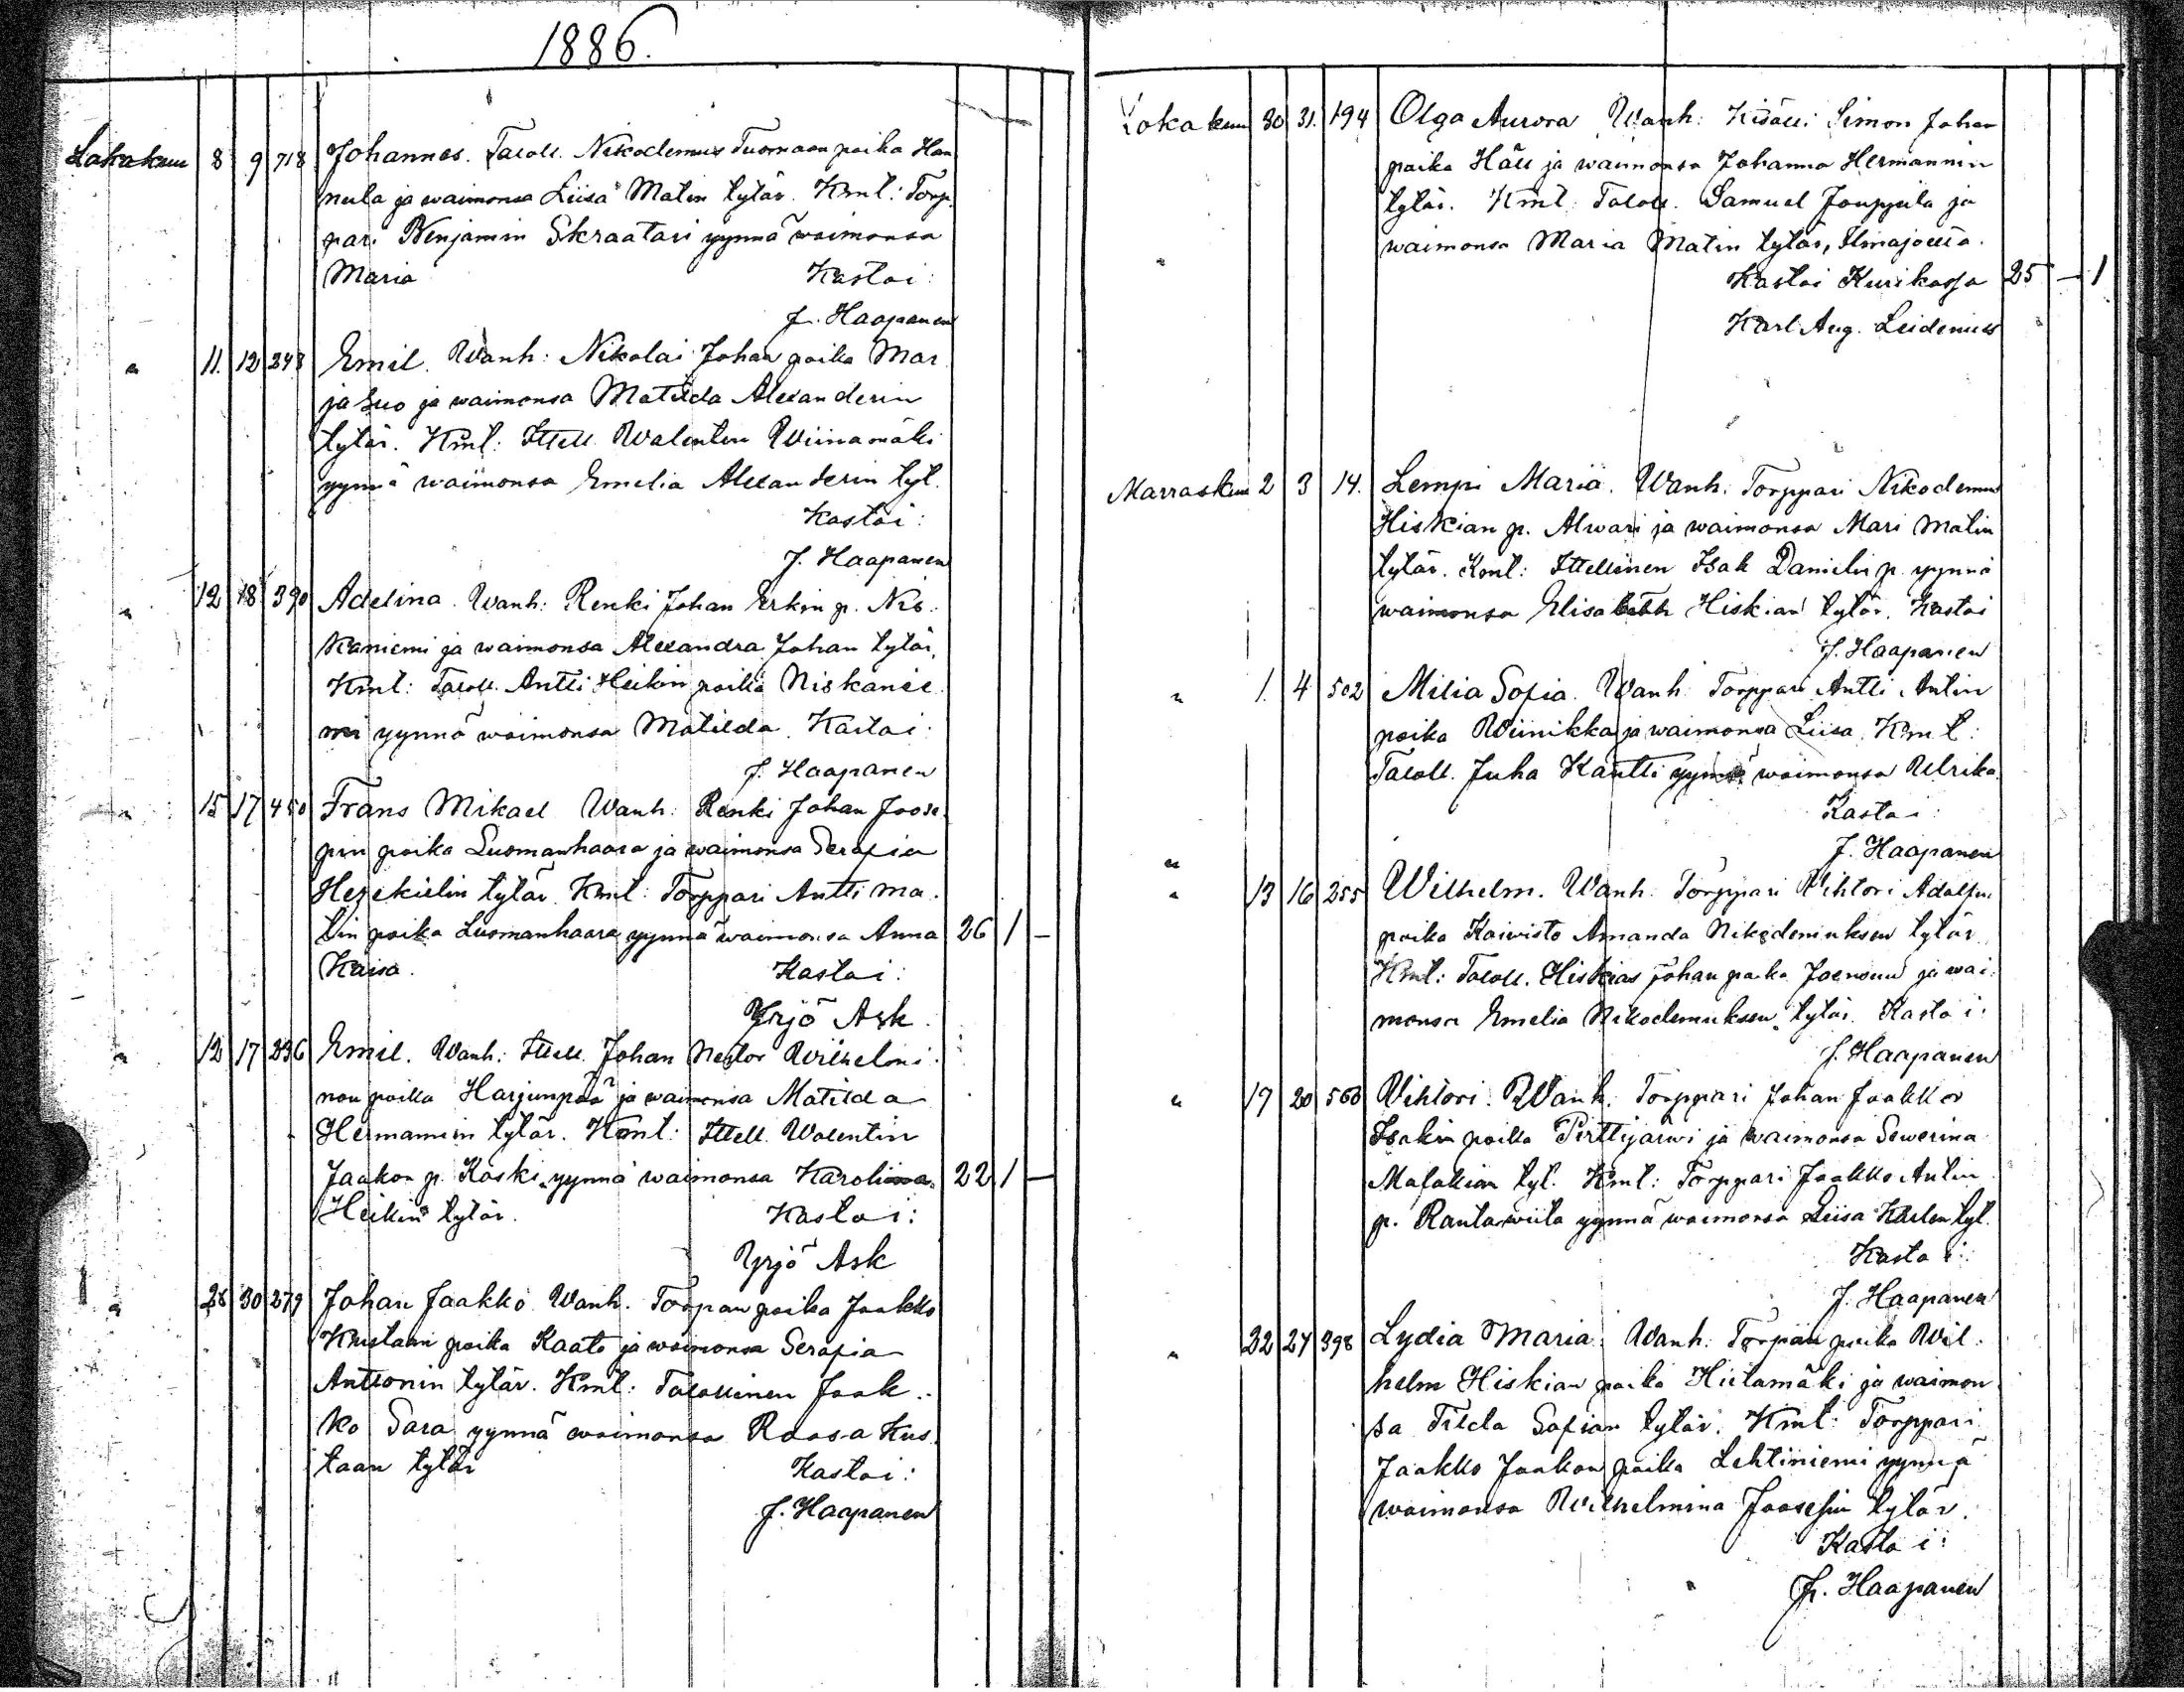 1886.
Lokakuu 8 9 718 Johannes. Taloll. Nikodemus Tuomaan poika Han
nula ja waimonsa Liisa Matin tytär. Kmt: Torp.
pari Benjamin Skraatari yynnä waimonsa
Maria Kastoi:
J. Haapanen
" 11. 12 248 Emil. Wanh: Nikolai Johan poika Mar
jasuo ja waimonsa Matilda Alexanderin
tytär. Kmt: Ittell. Walentin Wiinamäki
yynnä waimonsa Emelia Alexanderin tyt.
Kastoi:
J. Haapanen
" 12 18 390 Adelina. Wanh: Renki Johan Erkin p. Nis.
kaniemi ja waimonsa Alexandra Johan tytär,
Kmt: Taloll. Antti Heikin poika Niskanie
mi yynnä waimonsa Matilda. Kastoi:
J. Haapanen
" 15 17 450 Frans Mikael Wanh: Renki Johan Joose
pin poika Luomanhaara ja waimonsa Serafia
Hezekielin tytär. Kmt: Torppari Antti Ma.
tin poika Luomanhaara yynnä waimonsa Anna 26 1 –
Kaisa. Kastoi:
Yrjö Ask.
" 12 17 236 Emil. Wanh: Ittell. Johan Nestor Wilhelmi.
nan poika Harjunpää ja waimonsa Matilda
Hermannin tytär. Kmt: Ittell. Walentin
Jaakon p. Koski yynnä waimonsa Karoliina 22 1 –
Heikin tytär. Kastoi:
Yrjö Ask
" 28 30 279 Johan Jaakko. Wanh. Torpan poika Jaakko
Kustaan poika Kaato ja waimonsa Serafia
Anttonin tytär. Kmt: Talollinen Jaak.
ko Sara yynnä waimonsa Roosa Kus
taan tytär Kastoi:
J. Haapanen
Lokakuu 30 31. 194 Olga Aurora Wanh: Kisälli Simon Johan
poika Häll ja waimonsa Johanna Hermannin
tytär. Kmt: Taloll. Samuel Jouppila ja
waimonsa Maria Matin tytär, Ilmajoella.
" Kastoi Kurikassa 25 – 1
Karl Aug. Leidenius
Marraskuu 2 3 14. Lempi Maria. Wanh: Torppari Nikodemus
Hiskian p. Alwari ja waimonsa Mari Matin
tytär. Kmt: Ittellinen Isak Danielin p. yynnä
waimonsa Elisabeth Hiskian tytär. Kastoi
J. Haapanen
" 1. 4 502 Milia Sofia. Wanh: Torppari Antti Antin
poika Wiinikka ja waimonsa Liisa. Kmt:
Taloll. Juha Kantti yynnä waimonsa Ulrika.
Kastoi:
" J. Haapanen
" 13 16 255 Wilhelm. Wanh: Torppari Vihtori Adolfin
poika Koiwisto Amanda Nikodemuksen tytär.
Kmt: Taloll. Hiskias Johan poika ja wai.
monsa Emelia Nikodemuksen tytär. Kastoi:
J. Haapanen
" 19 20 560 Vihtori. Wanh: Torppari Johan Jaakko
Isakin poika Pirttijärwi ja waimonsa Sewerina
Malakian tyt. Kmt: Torppari Jaakko Antin
p. Rantawiita yynnä waimonsa Liisa Kaslen tyt.
Kastoi:
J. Haapanen
" 22 24 398 Lydia Maria. Wanh: Torpan poika Wil.
helm Hiskian poika Hietamäki ja waimon
sa Tilda Sofian tytär. Kmt: Torppari
Jaakko Jaakon poika Lehtiniemi yynnä
waimonsa Wilhelmina Joosefin tytär.
Kastoi:
J. Haapanen